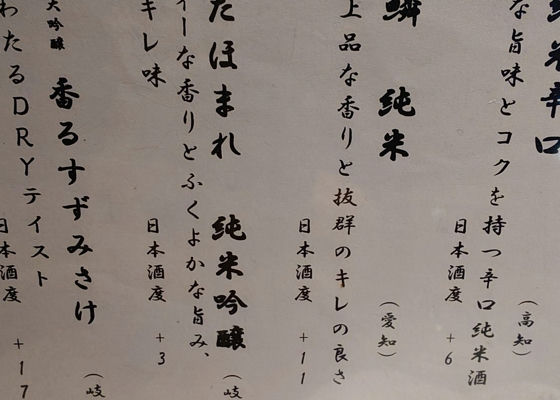 純米辛口
(高知)
な旨味とコクを持つ辛口純米酒
日本酒度 +6
鱗 純米
(愛知)
上品な香りと抜群のキレの良さ
日本酒度 +11
たほまれ 純米吟醸
(岐
ーな香りとふくよかな旨み、
キレ味
日本酒度 +3
大吟醸 香るすずみさけ
(岐
わたるDRYテイスト
日本酒度 +17